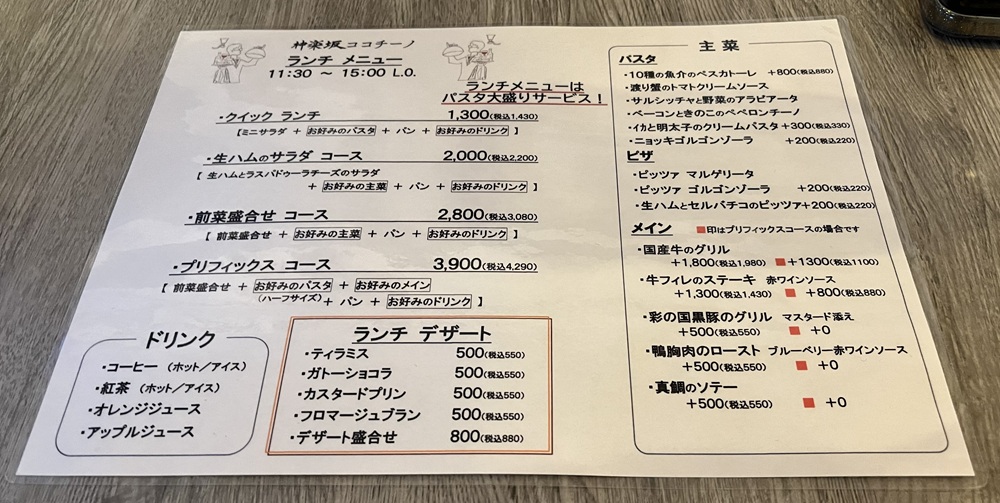 神楽坂ココチーノ
ランチ メニュー
11:30 ～ 15:00 L.O.
ランチメニューは
パスタ大盛りサービス！
・クイック ランチ 1,300(税込1,430)
【ミニサラダ + お好みのパスタ + パン + お好みのドリンク 】
・生ハムのサラダ コース 2,000(税込2,200)
【 生ハムとラスパドゥーラチーズのサラダ
+ お好みの主菜 + パン + お好みのドリンク 】
・前菜盛合せ コース 2,800(税込3,080)
【 前菜盛合せ + お好みの主菜 + パン + お好みのドリンク 】
・プリフィックス コース 3,900(税込4,290)
【 前菜盛合せ + お好みのパスタ + お好みのメイン
(ハーフサイズ) + パン + お好みのドリンク 】
ドリンク
・コーヒー (ホット/アイス)
・紅茶 (ホット/アイス)
・オレンジジュース
・アップルジュース
ランチ デザート
・ティラミス 500(税込550)
・ガトーショコラ 500(税込550)
・カスタードプリン 500(税込550)
・フロマージュブラン 500(税込550)
・デザート盛合せ 800(税込880)
主菜
パスタ
・10種の魚介のペスカトーレ +800(税込880)
・渡り蟹のトマトクリームソース
・サルシッチャと野菜のアラビアータ
・ベーコンときのこのペペロンチーノ
・イカと明太子のクリームパスタ+300(税込330)
・ニョッキゴルゴンゾーラ +200(税込220)
ピザ
・ピッツァ マルゲリータ
・ピッツァ ゴルゴンゾーラ +200(税込220)
・生ハムとセルバチコのピッツァ+200(税込220)
メイン ■印はプリフィックスコースの場合です
・国産牛のグリル
+1,800(税込1,980) ■+1300(税込1100)
・牛フィレのステーキ 赤ワインソース
+1,300(税込1,430) ■ +800(税込880)
・彩の国黒豚のグリル マスタード添え
+500(税込550) ■ +0
・鴨胸肉のロースト ブルーベリー赤ワインソース
+500(税込550) ■ +0
・真鯛のソテー
+500(税込550) ■ +0